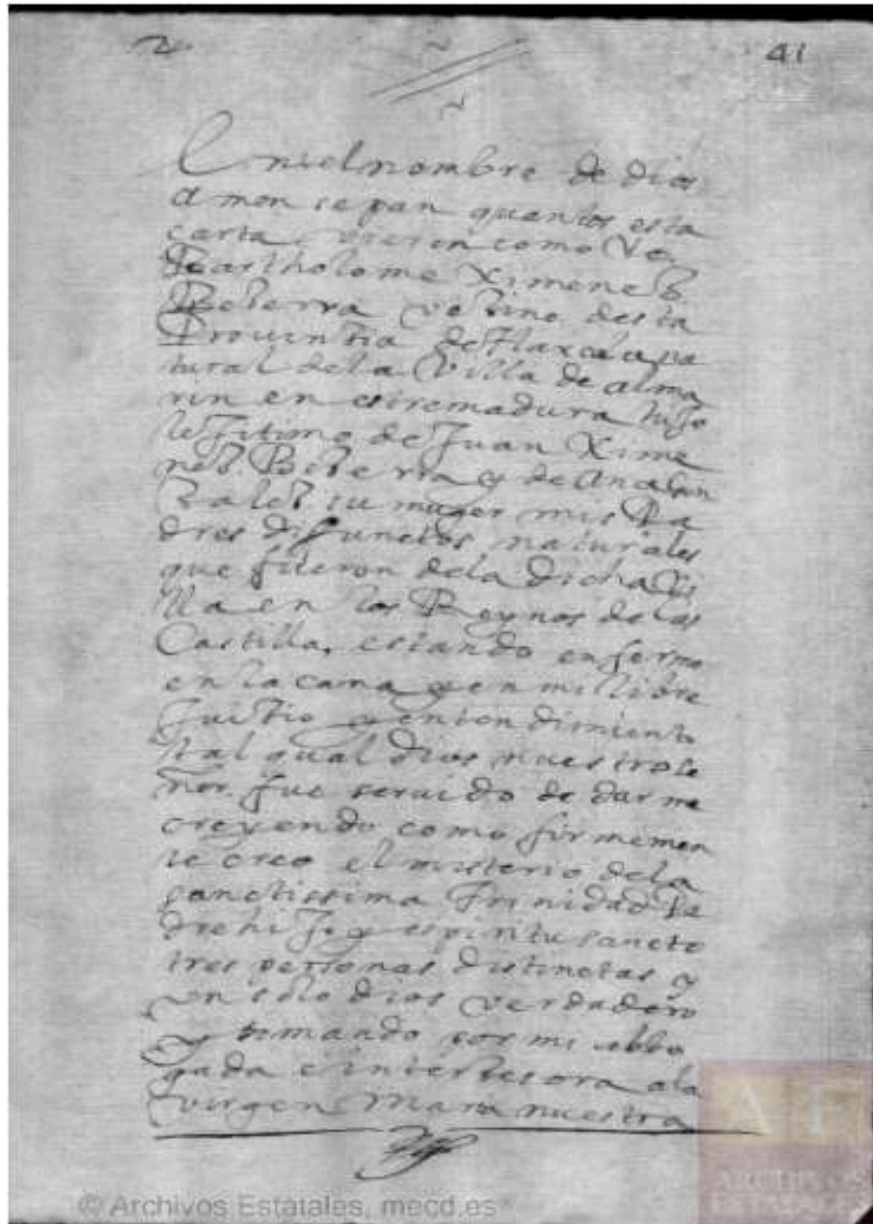 2 41
En el nombre de dios
amen sepan quantos esta
carta vieren como Yo
Bartholome Ximenez
Bezerra vezino desta
Prouintia de tlaxcala na
tural de la Villa de alma
rin en estremadura hijo
lejitimo de Juan Xime
nez Bezerra y de Ana Gon
zalez su muger mis Pa
dres difunctos naturales
que fueron de la dicha Vi
lla en los Reynos de
Castilla, estando enfermo
en la cama y en mi libre
Juitio y entendimiento
tal qual dios nuestro se
ñor fue seruido de darme
creyendo como firmemen
te creo el misterio de la
sanctissima trinidad Pa
dre hijo y espiritu sancto
tres personas distinctas y
un solo dios verdadero
y tomando por mi abbo
gada e intersesora a la
virgen Maria nuestra
© Archivos Estatales, mecd.es
AE
ARCHIVOS
ESTATALES